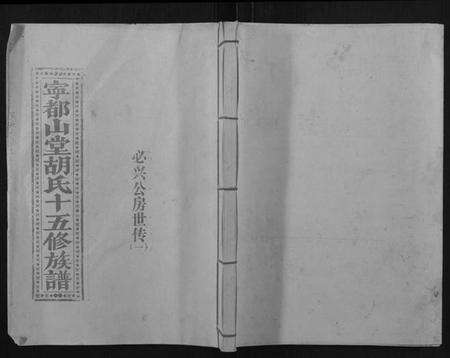 寧都山堂胡氏十五修族譜
必兴公房世传(一)